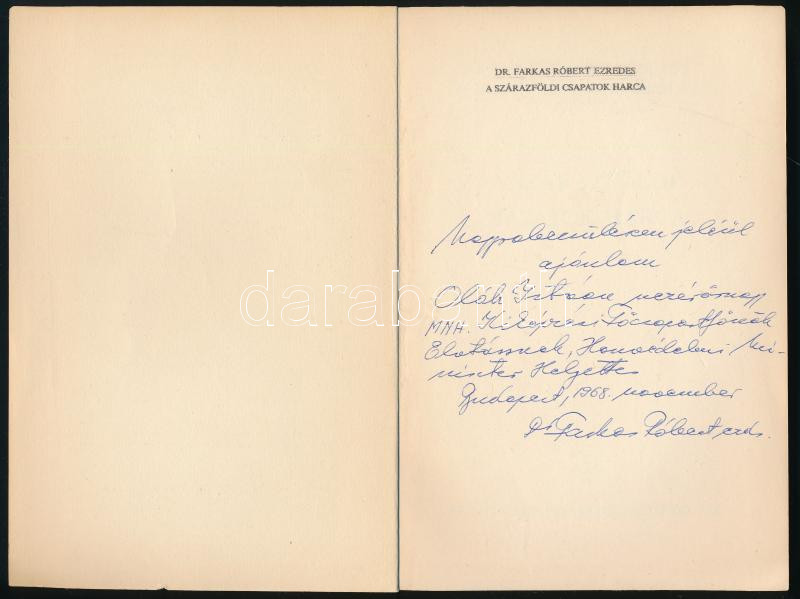 DR. FARKAS RÓBERT EZREDES
A SZÁRAZFÖLDI CSAPATOK HARCA
Nagyrabecsülésem jeléül
ajánlom
Oláh István vezérőrnagy
MNH. Kiképzési Főcsoportfőnök
Elvtársnak, Honvédelmi Mi-
niszter Helyettes
Budapest, 1968. november
Dr Farkas Róbert ezds.
darabanth